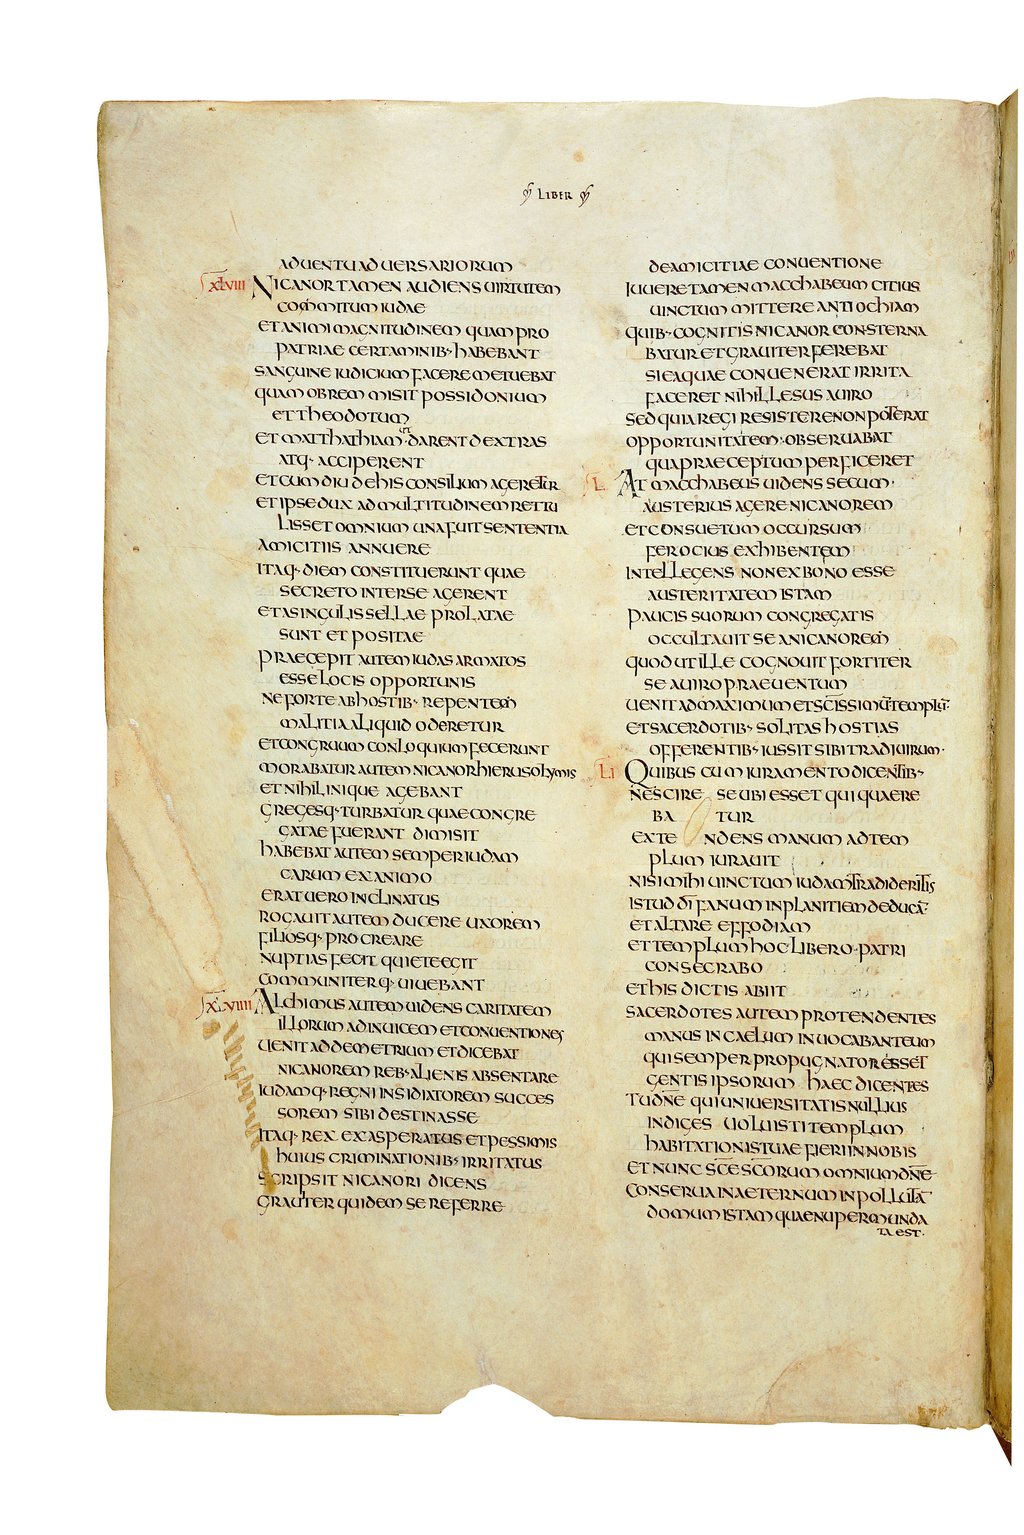 LIBER
ADUENTU ADUERSARIORUM
XLVIII NICANOR TAMEN AUDIENS UIRTUTEM
COMMITUM IUDAE
ET ANIMI MAGNITUDINEM QUAM PRO
PATRIAE CERTAMINIB· HABEBANT
SANGUINE IUDICIUM FACERE METUEBAT
QUAM OBREM MISIT POSSIDONIUM
ET THEODOTUM
ET MATTHATHIAM UT DARENT DEXTRAS
ATQ· ACCIPERENT
ET CUM DIU DE HIS CONSILIUM AGERETUR
ET IPSE DUX AD MULTITUDINEM RETTU
LISSET OMNIUM UNA FUIT SENTENTIA
AMICITIIS ANNUERE
ITAQ· DIEM CONSTITUERUNT QUAE
SECRETO INTER SE AGERENT
ET A SINGULIS SELLAE PROLATAE
SUNT ET POSITAE
PRAECEPIT AUTEM IUDAS ARMATOS
ESSE LOCIS OPPORTUNIS
NE FORTE AB HOSTIB· REPENTEM
MALITIA ALIQUID ODERETUR
ET CONGRUUM CONLOQUIUM FECERUNT
MORABATUR AUTEM NICANOR HIERUSOLYMIS
ET NIHIL INIQUE AGEBANT
GREGESQ· TURBATUR QUAE CONGRE
GATAE FUERANT DIMISIT
HABEBAT AUTEM SEMPER IUDAM
CARUM EX ANIMO
ERAT UERO INCLINATUS
ROGAUIT AUTEM DUCERE UXOREM
FILIOSQ· PROCREARE
NUPTIAS FECIT QUIETE EGIT
COMMUNITERQ· UIUEBANT
XLVIIII ALCHIMUS AUTEM UIDENS CARITATEM
ILLORUM AD INUICEM ET CONUENTIONES
UENIT AD DEMETRIUM ET DICEBAT
NICANOREM REB· ALIENIS ABSENTARE
IUDAMQ· REGNI INSIDIATOREM SUCCES
SOREM SIBI DESTINASSE
ITAQ· REX EXASPERATUS ET PESSIMIS
HUIUS CRIMINATIONIB· IRRITATUS
SCRIPSIT NICANORI DICENS
GRAUTER QUIDEM SE REFERRE
DE AMICITIAE CONUENTIONE
IUUERE TAMEN MACCHABEUM CITIUS
UINCTUM MITTERE ANTIOCHIAM
QUIB· COGNITIS NICANOR CONSTERNA
BATUR ET GRAUITER FEREBAT
SI EA QUAE CONUENERAT IRRITA
FACERET NIHIL LESUS A UIRO
SED QUIA REGI RESISTERE NON POTERAT
OPPORTUNITATEM OBSERUABAT
QUA PRAECEPTUM PERFICERET
L AT MACCHABEUS UIDENS SECUM·
AUSTERIUS AGERE NICANOREM
ET CONSUETUM OCCURSUM
FEROCIUS EXHIBENTEM
INTELLEGENS NON EX BONO ESSE
AUSTERITATEM ISTAM
PAUCIS SUORUM CONGREGATIS
OCCULTAUIT SE A NICANOREM
QUOD UT ILLE COGNOUIT FORTITER
SE A UIRO PRAEUENTUM
UENIT AD MAXIMUM ET SCISSIMŪ TEMPLŪ·
ET SACERDOTIB· SOLITAS HOSTIAS
OFFERENTIB· IUSSIT SIBI TRADI UIRUM·
LI QUIBUS CUM IURAMENTO DICENTIB·
NESCIRE SE UBI ESSET QUI QUAERE
BA TUR
EXTE NDENS MANUM AD TEM
PLUM IURAUIT
NISI MIHI UINCTUM IUDAM TRADIDERITIS
ISTUD DĪ FANUM IN PLANITIEM DEDUCĀ·
ET ALTARE EFFODIAM
ET TEMPLUM HOC LIBERO PATRI
CONSECRABO
ET HIS DICTIS ABIIT
SACERDOTES AUTEM PROTENDENTES
MANUS IN CAELUM INUOCABANT EUM
QUI SEMPER PROPUGNATOR ESSET
GENTIS IPSORUM HAEC DICENTES
TU DN̄E QUI UNIUERSITATIS NULLIUS
INDIGES UOLUISTI TEMPLUM
HABITATIONIS TUAE FIERI IN NOBIS
ET NUNC SC̄E SC̄ORUM OMNIUM DN̄E
CONSERUA IN AETERNUM INPOLLUTĀ
DOMUM ISTAM QUAE NUPER MUNDA
TA EST·